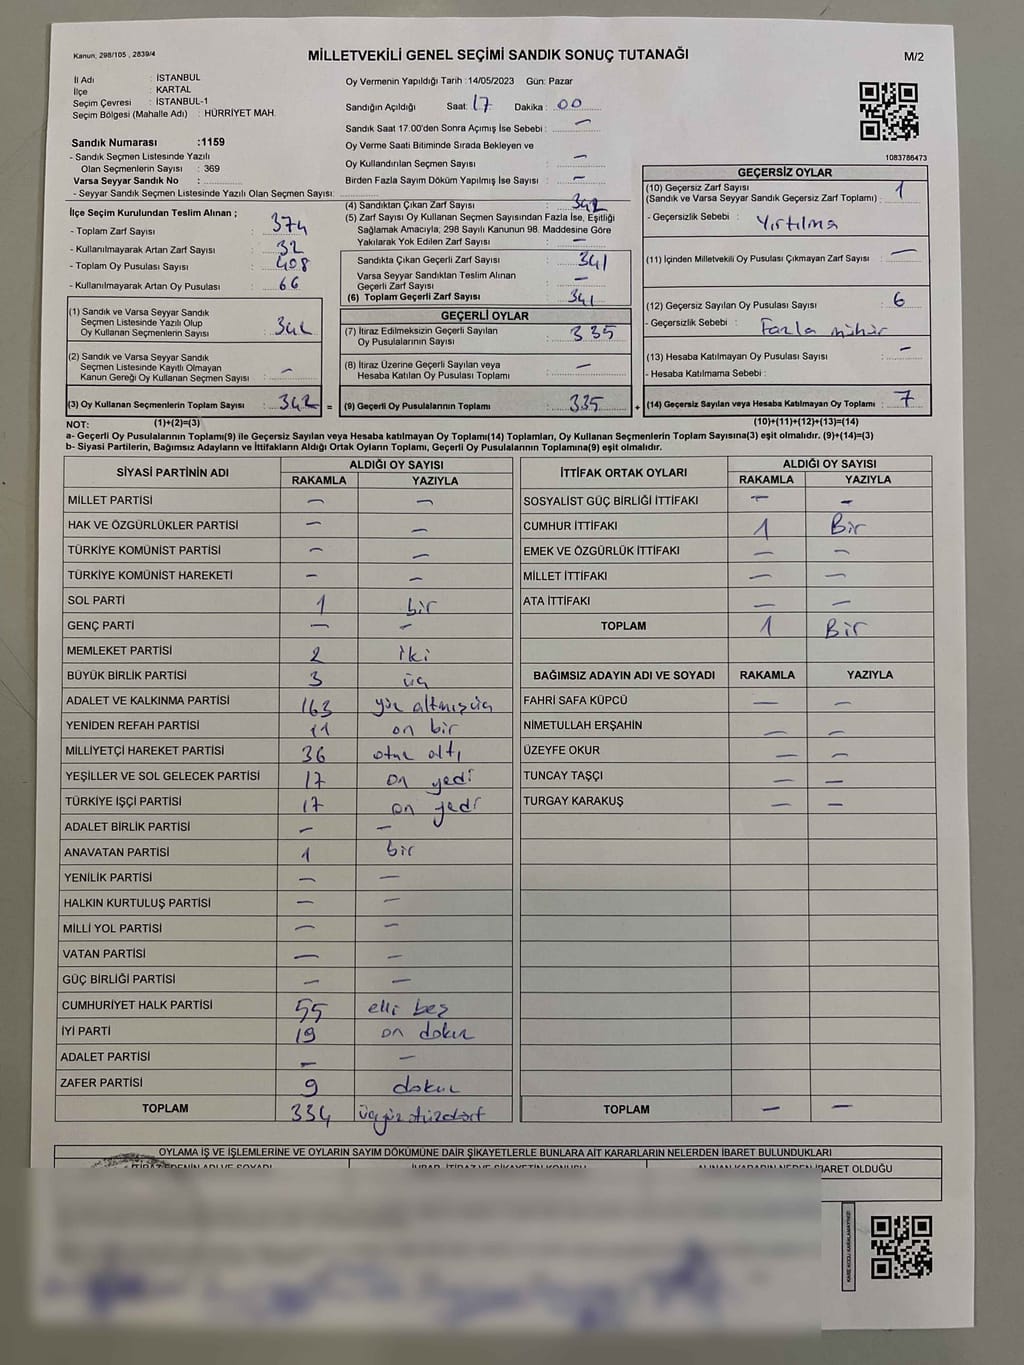 Kanun, 298/105 , 2839/4
MİLLETVEKİLİ GENEL SEÇİMİ SANDIK SONUÇ TUTANAĞI
M/2
İl Adı : İSTANBUL
İlçe : KARTAL
Seçim Çevresi : İSTANBUL-1
Seçim Bölgesi (Mahalle Adı) : HÜRRİYET MAH.
Sandık Numarası :1159
- Sandık Seçmen Listesinde Yazılı
Olan Seçmenlerin Sayısı : 369
Varsa Seyyar Sandık No :
- Seyyar Sandık Seçmen Listesinde Yazılı Olan Seçmen Sayısı:
Oy Vermenin Yapıldığı Tarih :14/05/2023 Gün: Pazar
Sandığın Açıldığı Saat: 17 Dakika : 00
Sandık Saat 17.00'den Sonra Açımış İse Sebebi : —
Oy Verme Saati Bitiminde Sırada Bekleyen ve
Oy Kullandırılan Seçmen Sayısı : —
Birden Fazla Sayım Döküm Yapılmış İse Sayısı : —
1083786473
İlçe Seçim Kurulundan Teslim Alınan ;
- Toplam Zarf Sayısı : 374
- Kullanılmayarak Artan Zarf Sayısı : 32
- Toplam Oy Pusulası Sayısı : 408
- Kullanılmayarak Artan Oy Pusulası : 66
(1) Sandık ve Varsa Seyyar Sandık
Seçmen Listesinde Yazılı Olup
Oy Kullanan Seçmenlerin Sayısı : 342
(2) Sandık ve Varsa Seyyar Sandık
Seçmen Listesinde Kayıtlı Olmayan
Kanun Gereği Oy Kullanan Seçmen Sayısı : —
(3) Oy Kullanan Seçmenlerin Toplam Sayısı : 342 =
(4) Sandıktan Çıkan Zarf Sayısı : 342
(5) Zarf Sayısı Oy Kullanan Seçmen Sayısından Fazla İse, Eşitliği
Sağlamak Amacıyla; 298 Sayılı Kanunun 98. Maddesine Göre
Yakılarak Yok Edilen Zarf Sayısı : —
Sandıkta Çıkan Geçerli Zarf Sayısı : 341
Varsa Seyyar Sandıktan Teslim Alınan
Geçerli Zarf Sayısı : —
(6) Toplam Geçerli Zarf Sayısı : 341
GEÇERLİ OYLAR
(7) İtiraz Edilmeksizin Geçerli Sayılan
Oy Pusulalarının Sayısı : 335
(8) İtiraz Üzerine Geçerli Sayılan veya
Hesaba Katılan Oy Pusulası Toplamı : —
(9) Geçerli Oy Pusulalarının Toplamı : 335 +
GEÇERSİZ OYLAR
(10) Geçersiz Zarf Sayısı
(Sandık ve Varsa Seyyar Sandık Geçersiz Zarf Toplamı) : 1
- Geçersizlik Sebebi : Yırtılma
(11) İçinden Milletvekili Oy Pusulası Çıkmayan Zarf Sayısı : —
(12) Geçersiz Sayılan Oy Pusulası Sayısı : 6
- Geçersizlik Sebebi : Fazla mühür
(13) Hesaba Katılmayan Oy Pusulası Sayısı : —
- Hesaba Katılmama Sebebi :
(14) Geçersiz Sayılan veya Hesaba Katılmayan Oy Toplamı : 7
NOT: (1)+(2)=(3) (10)+(11)+(12)+(13)=(14)
a- Geçerli Oy Pusulalarının Toplamı(9) ile Geçersiz Sayılan veya Hesaba katılmayan Oy Toplamı(14) Toplamları, Oy Kullanan Seçmenlerin Toplam Sayısına(3) eşit olmalıdır. (9)+(14)=(3)
b- Siyasi Partilerin, Bağımsız Adayların ve İttifakların Aldığı Ortak Oyların Toplamı, Geçerli Oy Pusulalarının Toplamına(9) eşit olmalıdır.
SİYASİ PARTİNİN ADI ALDIĞI OY SAYISI
RAKAMLA YAZIYLA
MİLLET PARTİSİ — —
HAK VE ÖZGÜRLÜKLER PARTİSİ — —
TÜRKİYE KOMÜNİST PARTİSİ — —
TÜRKİYE KOMÜNİST HAREKETİ — —
SOL PARTİ 1 bir
GENÇ PARTİ — —
MEMLEKET PARTİSİ 2 iki
BÜYÜK BİRLİK PARTİSİ 3 üç
ADALET VE KALKINMA PARTİSİ 163 yüz altmışüç
YENİDEN REFAH PARTİSİ 11 on bir
MİLLİYETÇİ HAREKET PARTİSİ 36 otuz altı
YEŞİLLER VE SOL GELECEK PARTİSİ 17 on yedi
TÜRKİYE İŞÇİ PARTİSİ 17 on yedi
ADALET BİRLİK PARTİSİ — —
ANAVATAN PARTİSİ 1 bir
YENİLİK PARTİSİ — —
HALKIN KURTULUŞ PARTİSİ — —
MİLLİ YOL PARTİSİ — —
VATAN PARTİSİ — —
GÜÇ BİRLİĞİ PARTİSİ — —
CUMHURİYET HALK PARTİSİ 55 elli beş
İYİ PARTİ 19 on dokuz
ADALET PARTİSİ — —
ZAFER PARTİSİ 9 dokuz
TOPLAM 334 üçyüz otuzdört
İTTİFAK ORTAK OYLARI ALDIĞI OY SAYISI
RAKAMLA YAZIYLA
SOSYALİST GÜÇ BİRLİĞİ İTTİFAKI — —
CUMHUR İTTİFAKI 1 Bir
EMEK VE ÖZGÜRLÜK İTTİFAKI — —
MİLLET İTTİFAKI — —
ATA İTTİFAKI — —
TOPLAM 1 Bir
BAĞIMSIZ ADAYIN ADI VE SOYADI RAKAMLA YAZIYLA
FAHRİ SAFA KÜPCÜ — —
NİMETULLAH ERŞAHİN — —
ÜZEYFE OKUR — —
TUNCAY TAŞÇI — —
TURGAY KARAKUŞ — —
TOPLAM — —
OYLAMA İŞ VE İŞLEMLERİNE VE OYLARIN SAYIM DÖKÜMÜNE DAİR ŞİKAYETLERLE BUNLARA AİT KARARLARIN NELERDEN İBARET BULUNDUKLARI
İTİRAZ EDENİN ADI VE SOYADI İHBAR, İTİRAZ VE ŞİKAYETİN KONUSU ALINAN KARARIN NEDEN İBARET OLDUĞU
KARE KODU KARALAMAYINIZ!